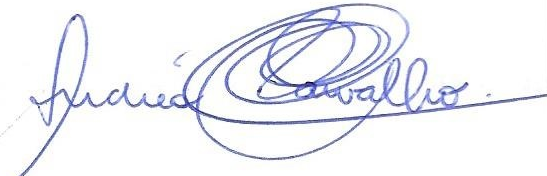 Andréa Carvalho.